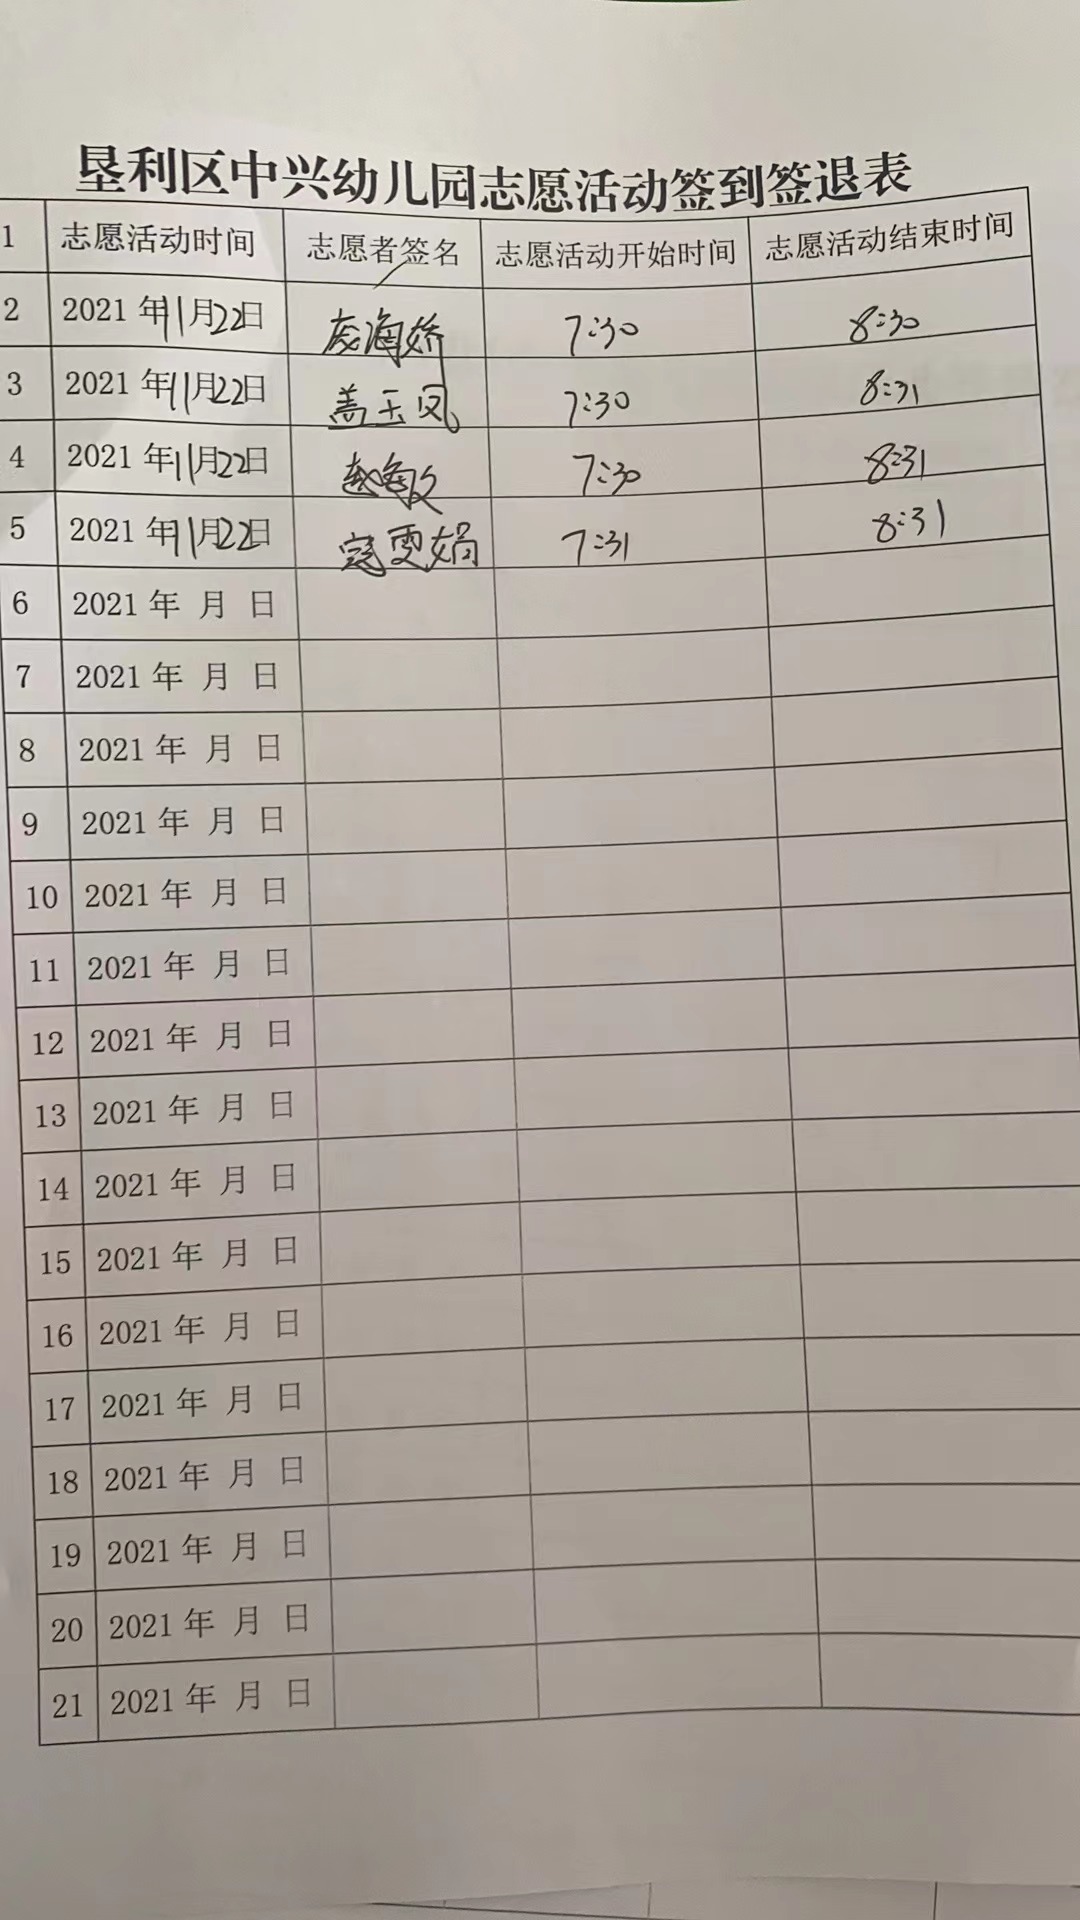 垦利区中兴幼儿园志愿活动签到签退表
1 志愿活动时间 志愿者签名 志愿活动开始时间 志愿活动结束时间
2 2021年11月22日 海娇 7:30 8:30
3 2021年11月22日 盖玉凤 7:30 8:31
4 2021年11月22日 赵敏 7:30 8:31
5 2021年11月22日 寇雯娟 7:31 8:31
6 2021年 月 日
7 2021年 月 日
8 2021年 月 日
9 2021年 月 日
10 2021年 月 日
11 2021年 月 日
12 2021年 月 日
13 2021年 月 日
14 2021年 月 日
15 2021年 月 日
16 2021年 月 日
17 2021年 月 日
18 2021年 月 日
19 2021年 月 日
20 2021年 月 日
21 2021年 月 日